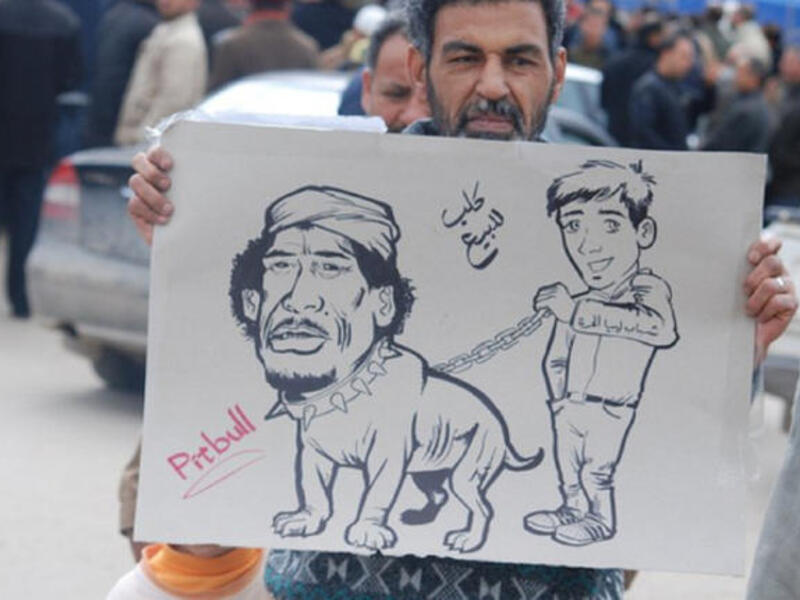 كلب
للبيع
شباب ليبيا الحرة
Pitbull